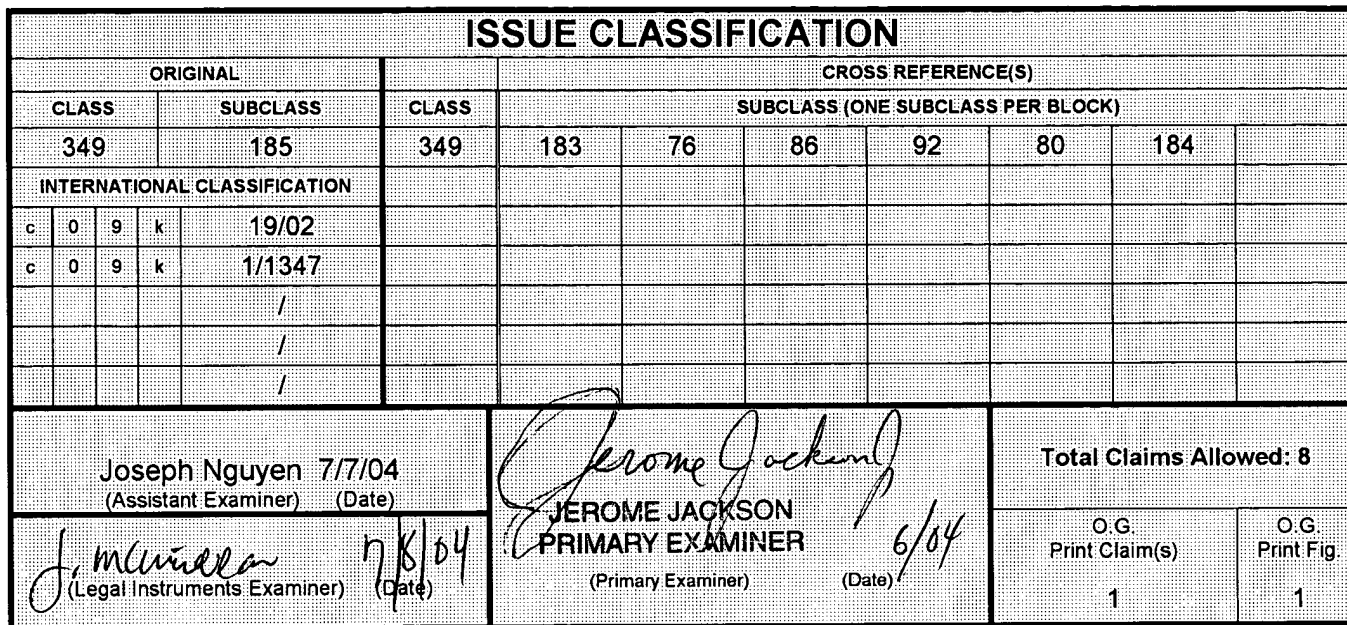 ISSUE CLASSIFICATION
ORIGINAL CROSS REFERENCE(S)
CLASS SUBCLASS CLASS SUBCLASS (ONE SUBCLASS PER BLOCK)
349 185 349 183 76 86 92 80 184
INTERNATIONAL CLASSIFICATION
c 0 9 k 19/02
c 0 9 k 1/1347
/
/
/
Joseph Nguyen 7/7/04
(Assistant Examiner) (Date)
7/8/04
(Legal Instruments Examiner) (Date)
Jerome Jackson
JEROME JACKSON
PRIMARY EXAMINER 6/04
(Primary Examiner) (Date)
Total Claims Allowed: 8
O.G. O.G.
Print Claim(s) Print Fig.
1 1